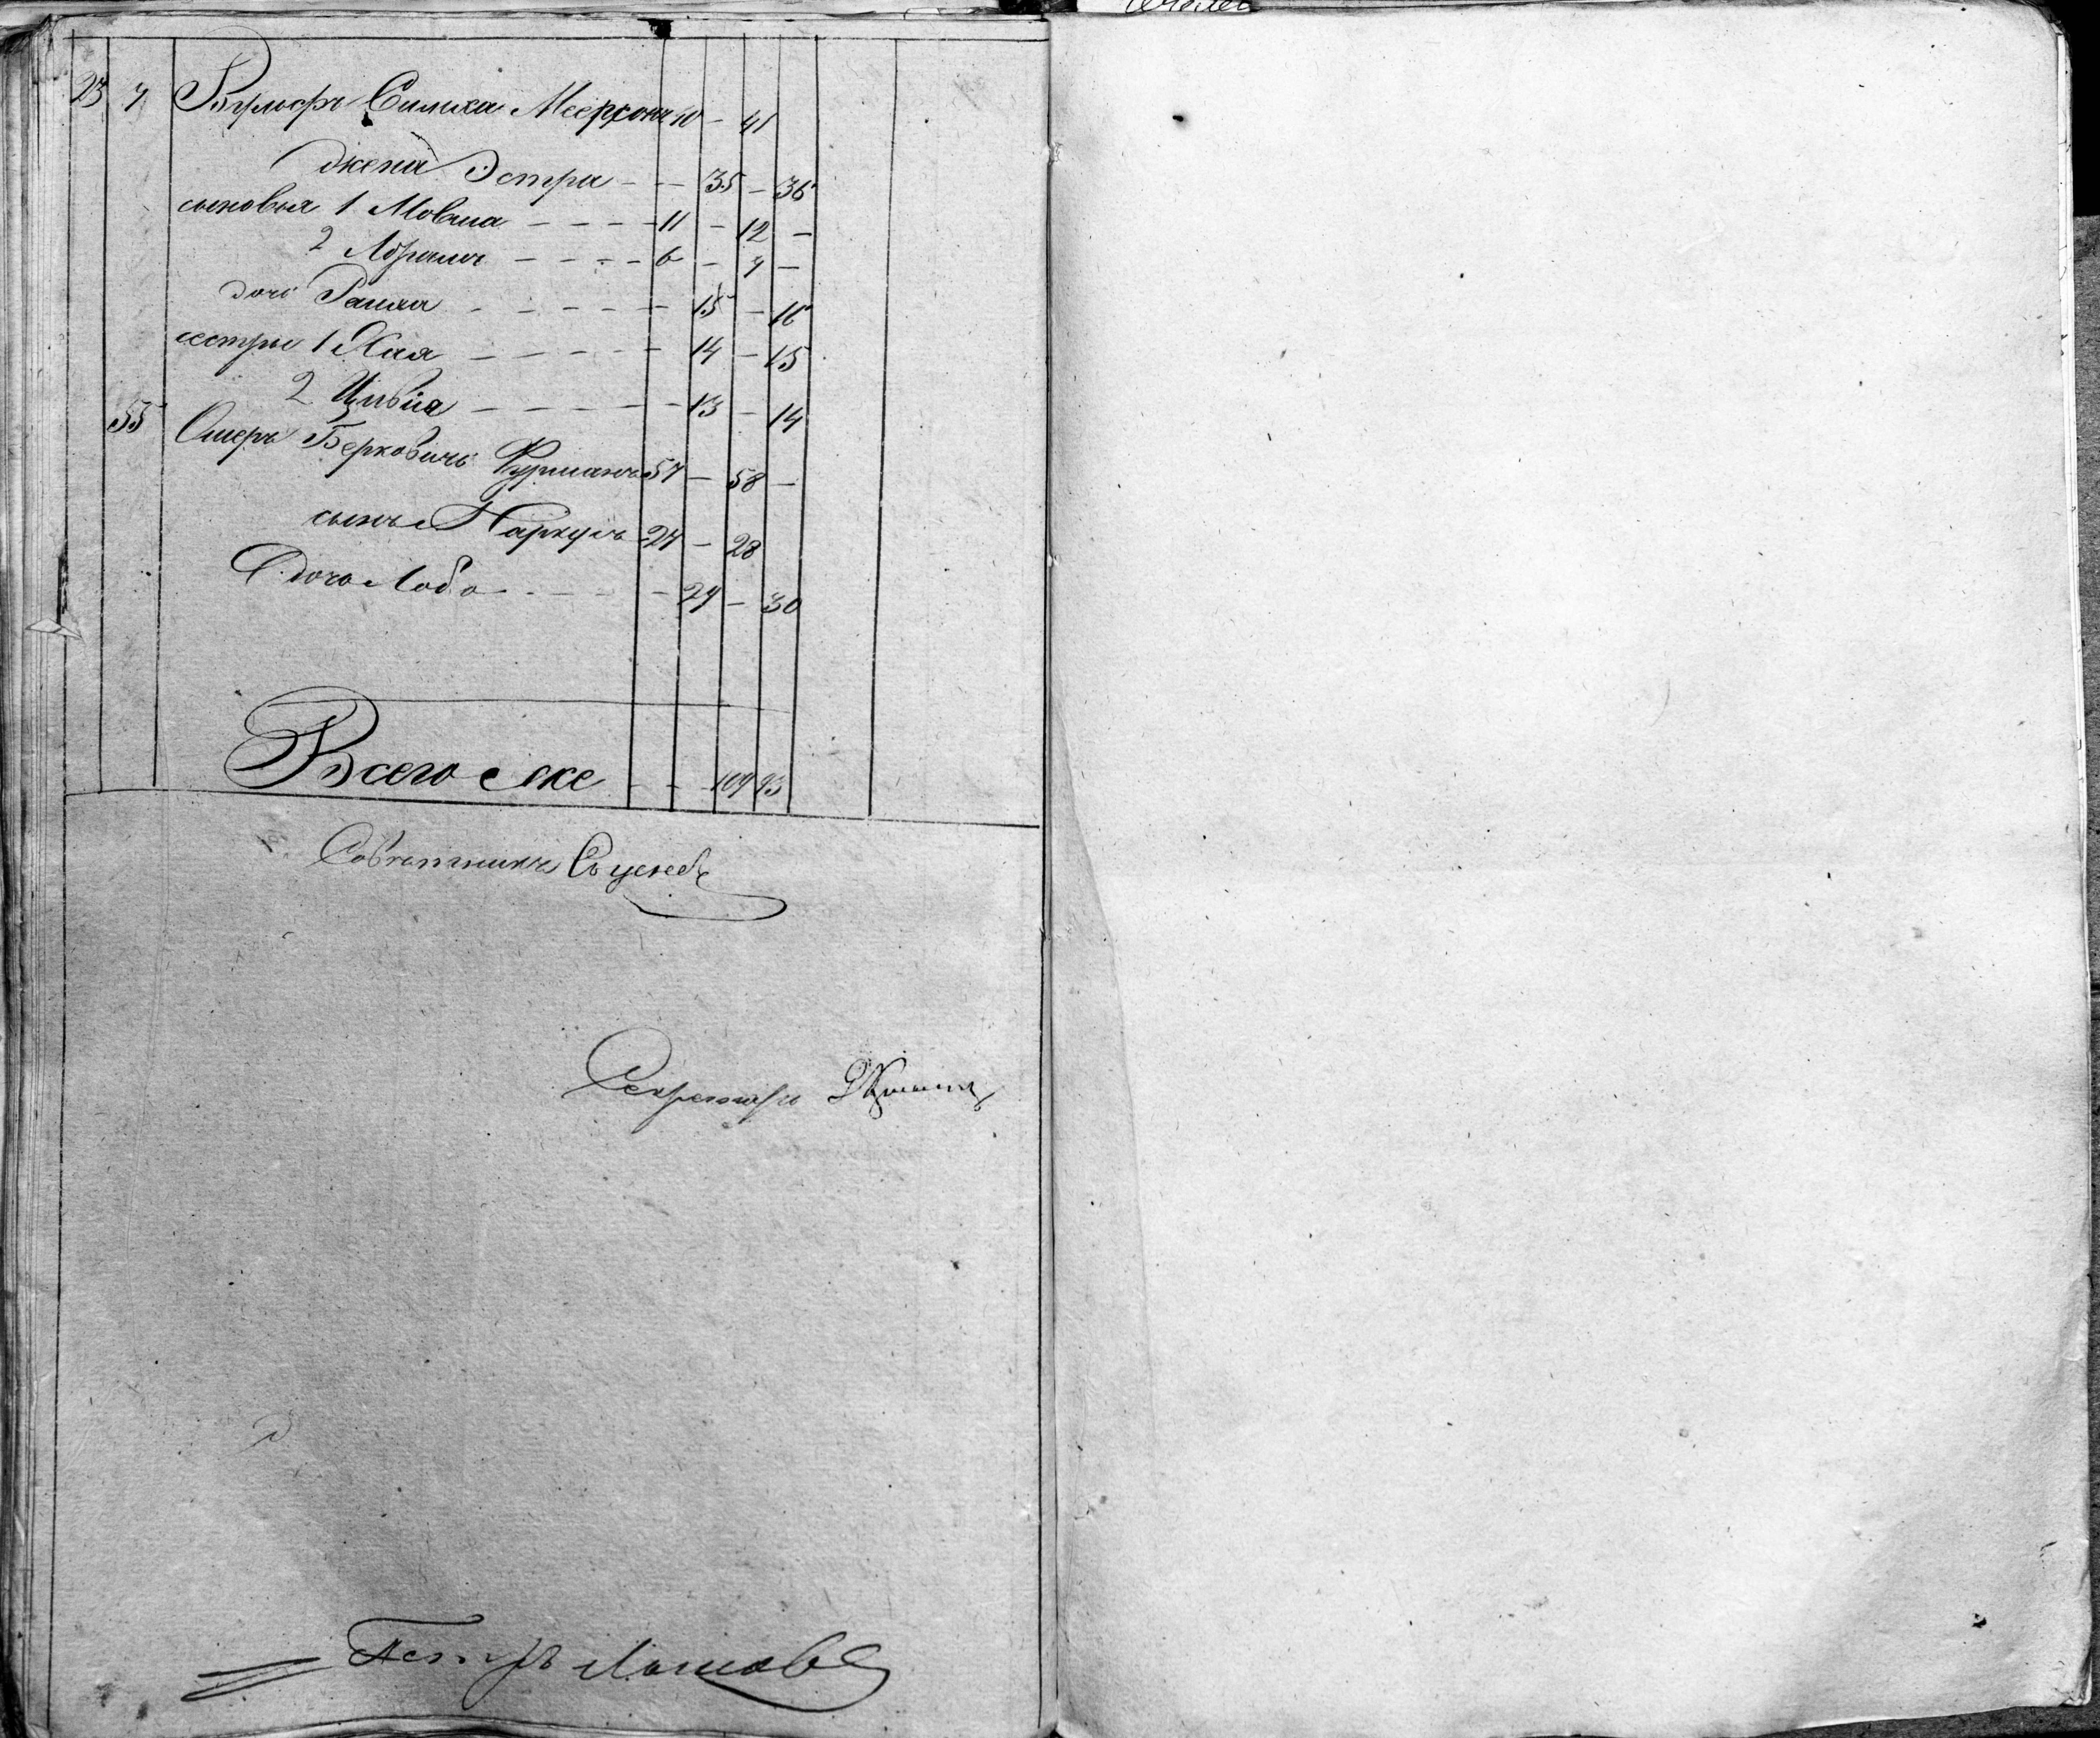 23 7 Вульфъ Симха Меерсонъ 40 — 41
жена Эстра — — 35 — 36
сыновья 1 Мовша — — — — 11 — 12 —
2 Абрамъ — — — — 6 — 7 —
дочь Рашка — — — — — 15 — 16
сестры 1 Хая — — — — — 14 — 15
2 Цивія — — — — — 13 — 14
55 Ошеръ Берковичъ Фурманъ 57 — 58 —
сынъ 27 — 28
дочь Либа — — — — 29 — 30
Всего — — — 109 93
Совѣтникъ
Секретарь
Петръ